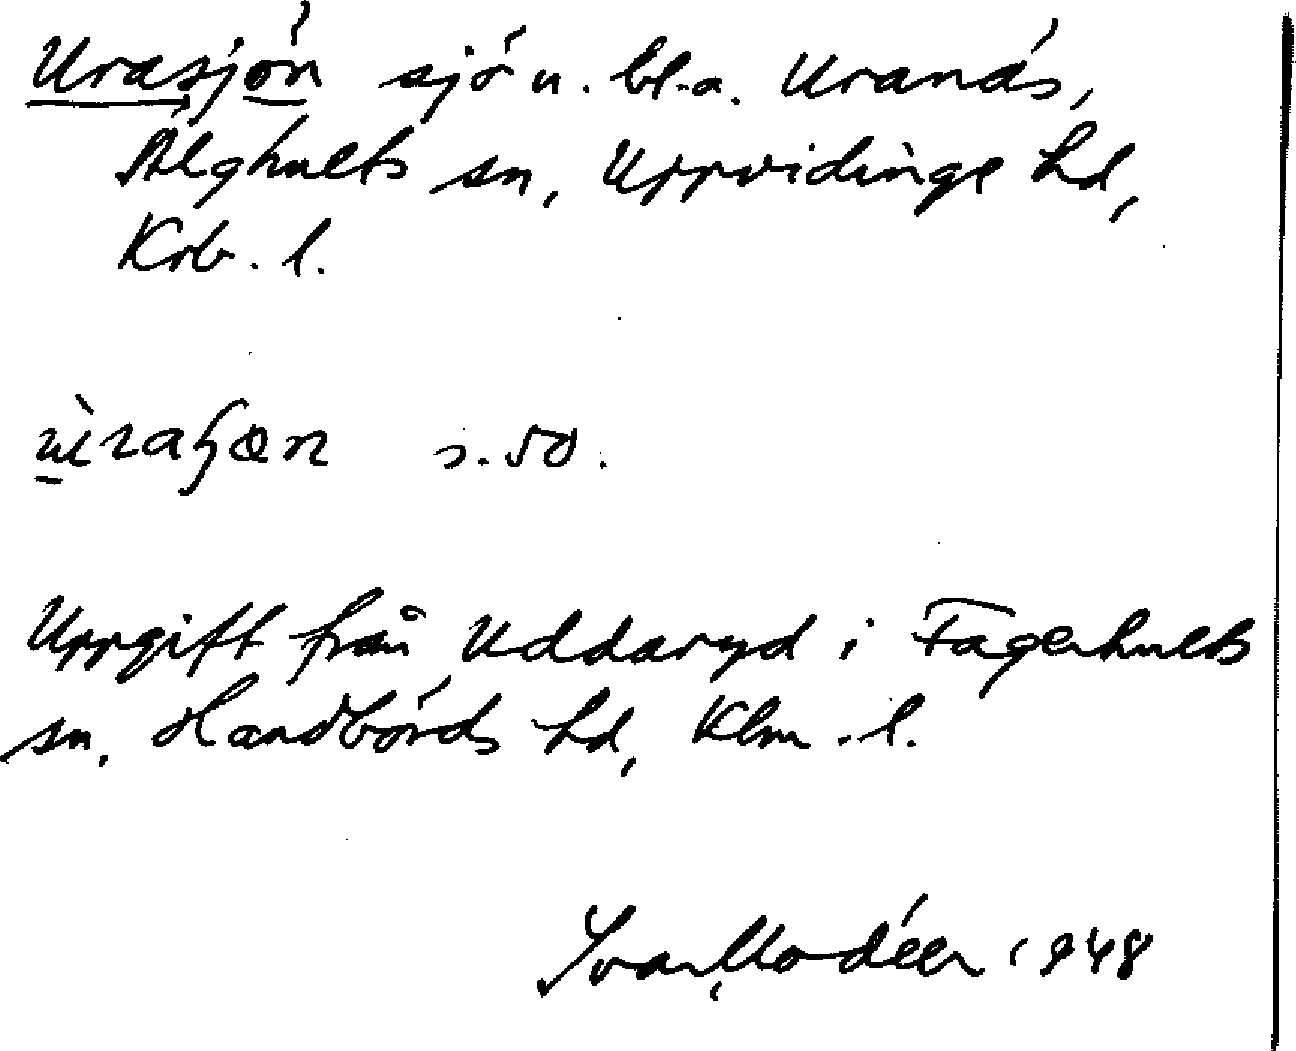 Urasjön sjö n. bl.a. Uranäs,
Älghults sn, Uppvidinge hd,
Krb. l.
s. 50.
Uppgift från Uddaryd i Fagerhults
sn, Handbörds hd, Klm. l.
Ivar Modéer 1948